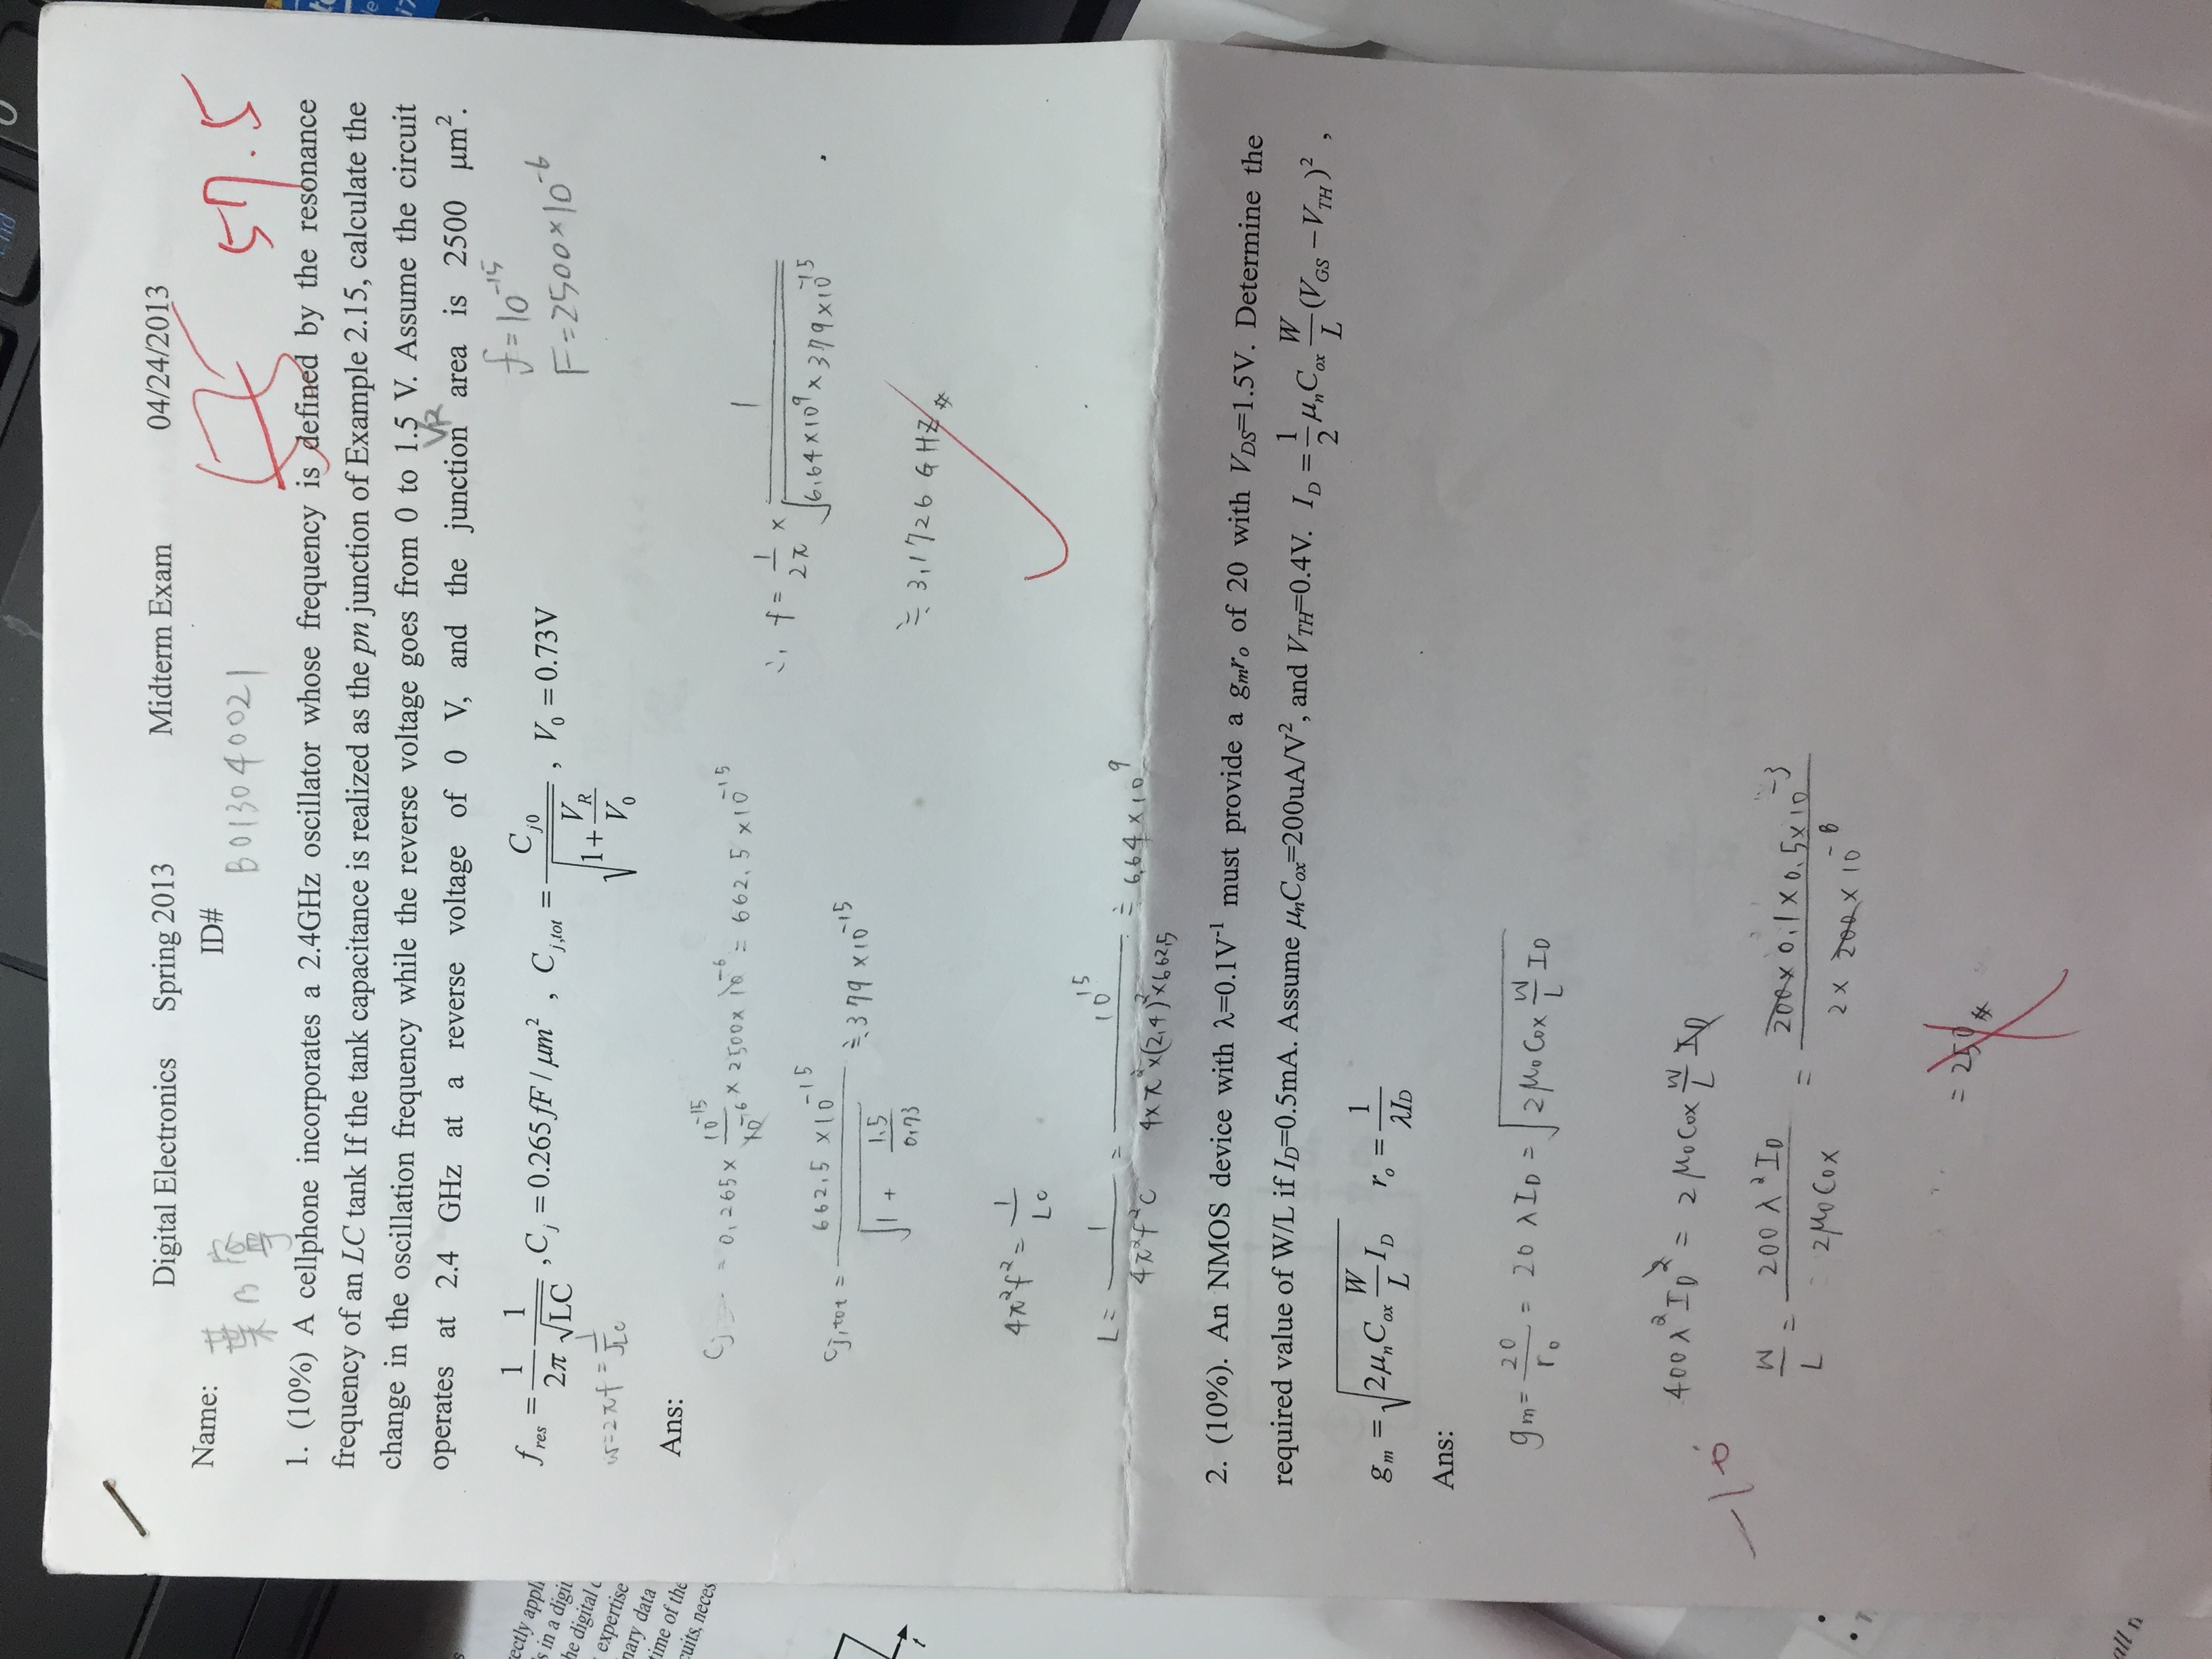 Digital Electronics Spring 2013 Midterm Exam 04/24/2013
Name: 葉乃寧 ID# B013040021
57.5
1. (10%) A cellphone incorporates a 2.4GHz oscillator whose frequency is defined by the resonance
frequency of an LC tank If the tank capacitance is realized as the pn junction of Example 2.15, calculate the
change in the oscillation frequency while the reverse voltage goes from 0 to 1.5 V. Assume the circuit
VR
operates at 2.4 GHz at a reverse voltage of 0 V, and the junction area is 2500 μm².
f_res = 1/2π 1/√LC , C_j = 0.265 fF / μm² , C_j,tot = C_j0 / √(1 + V_R/V_0) , V_0 = 0.73V
f = 10^-15
F = 2500×10^-6
w = 2πf = 1/√LC
Ans:
Cj = 0.265 × 10^-15/10^-6 × 2500 × 10^-6 = 662.5 × 10^-15
Cj,tot = 662.5 × 10^-15 / √(1 + 1.5/0.73) ≒ 379 × 10^-15
∴ f = 1/2π × 1/√(6.64×10^9 × 379×10^-15)
≒ 3.1726 GHZ #
4π²f² = 1/LC
L = 1/4π²f²C = 10^15 / 4×π²×(2.4)²×662.5 ≒ 6.64 × 10^9
2. (10%). An NMOS device with λ=0.1V⁻¹ must provide a g_m r_o of 20 with V_DS=1.5V. Determine the
required value of W/L if I_D=0.5mA. Assume μ_nC_ox=200uA/V², and V_TH=0.4V. I_D = 1/2 μ_n C_ox W/L (V_GS − V_TH)² ,
g_m = √(2μ_n C_ox W/L I_D) r_o = 1/λI_D
Ans:
gm = 20/r₀ = 20 λ I_D = √(2 μ₀ Cox W/L I_D)
400 λ² I_D² = 2 μ₀ Cox W/L I_D
-10
W/L = 200 λ² I_D / 2 μ₀ Cox = 200 × 0.1 × 0.5 × 10^-3 / 2 × 200 × 10^-6
= 250 #